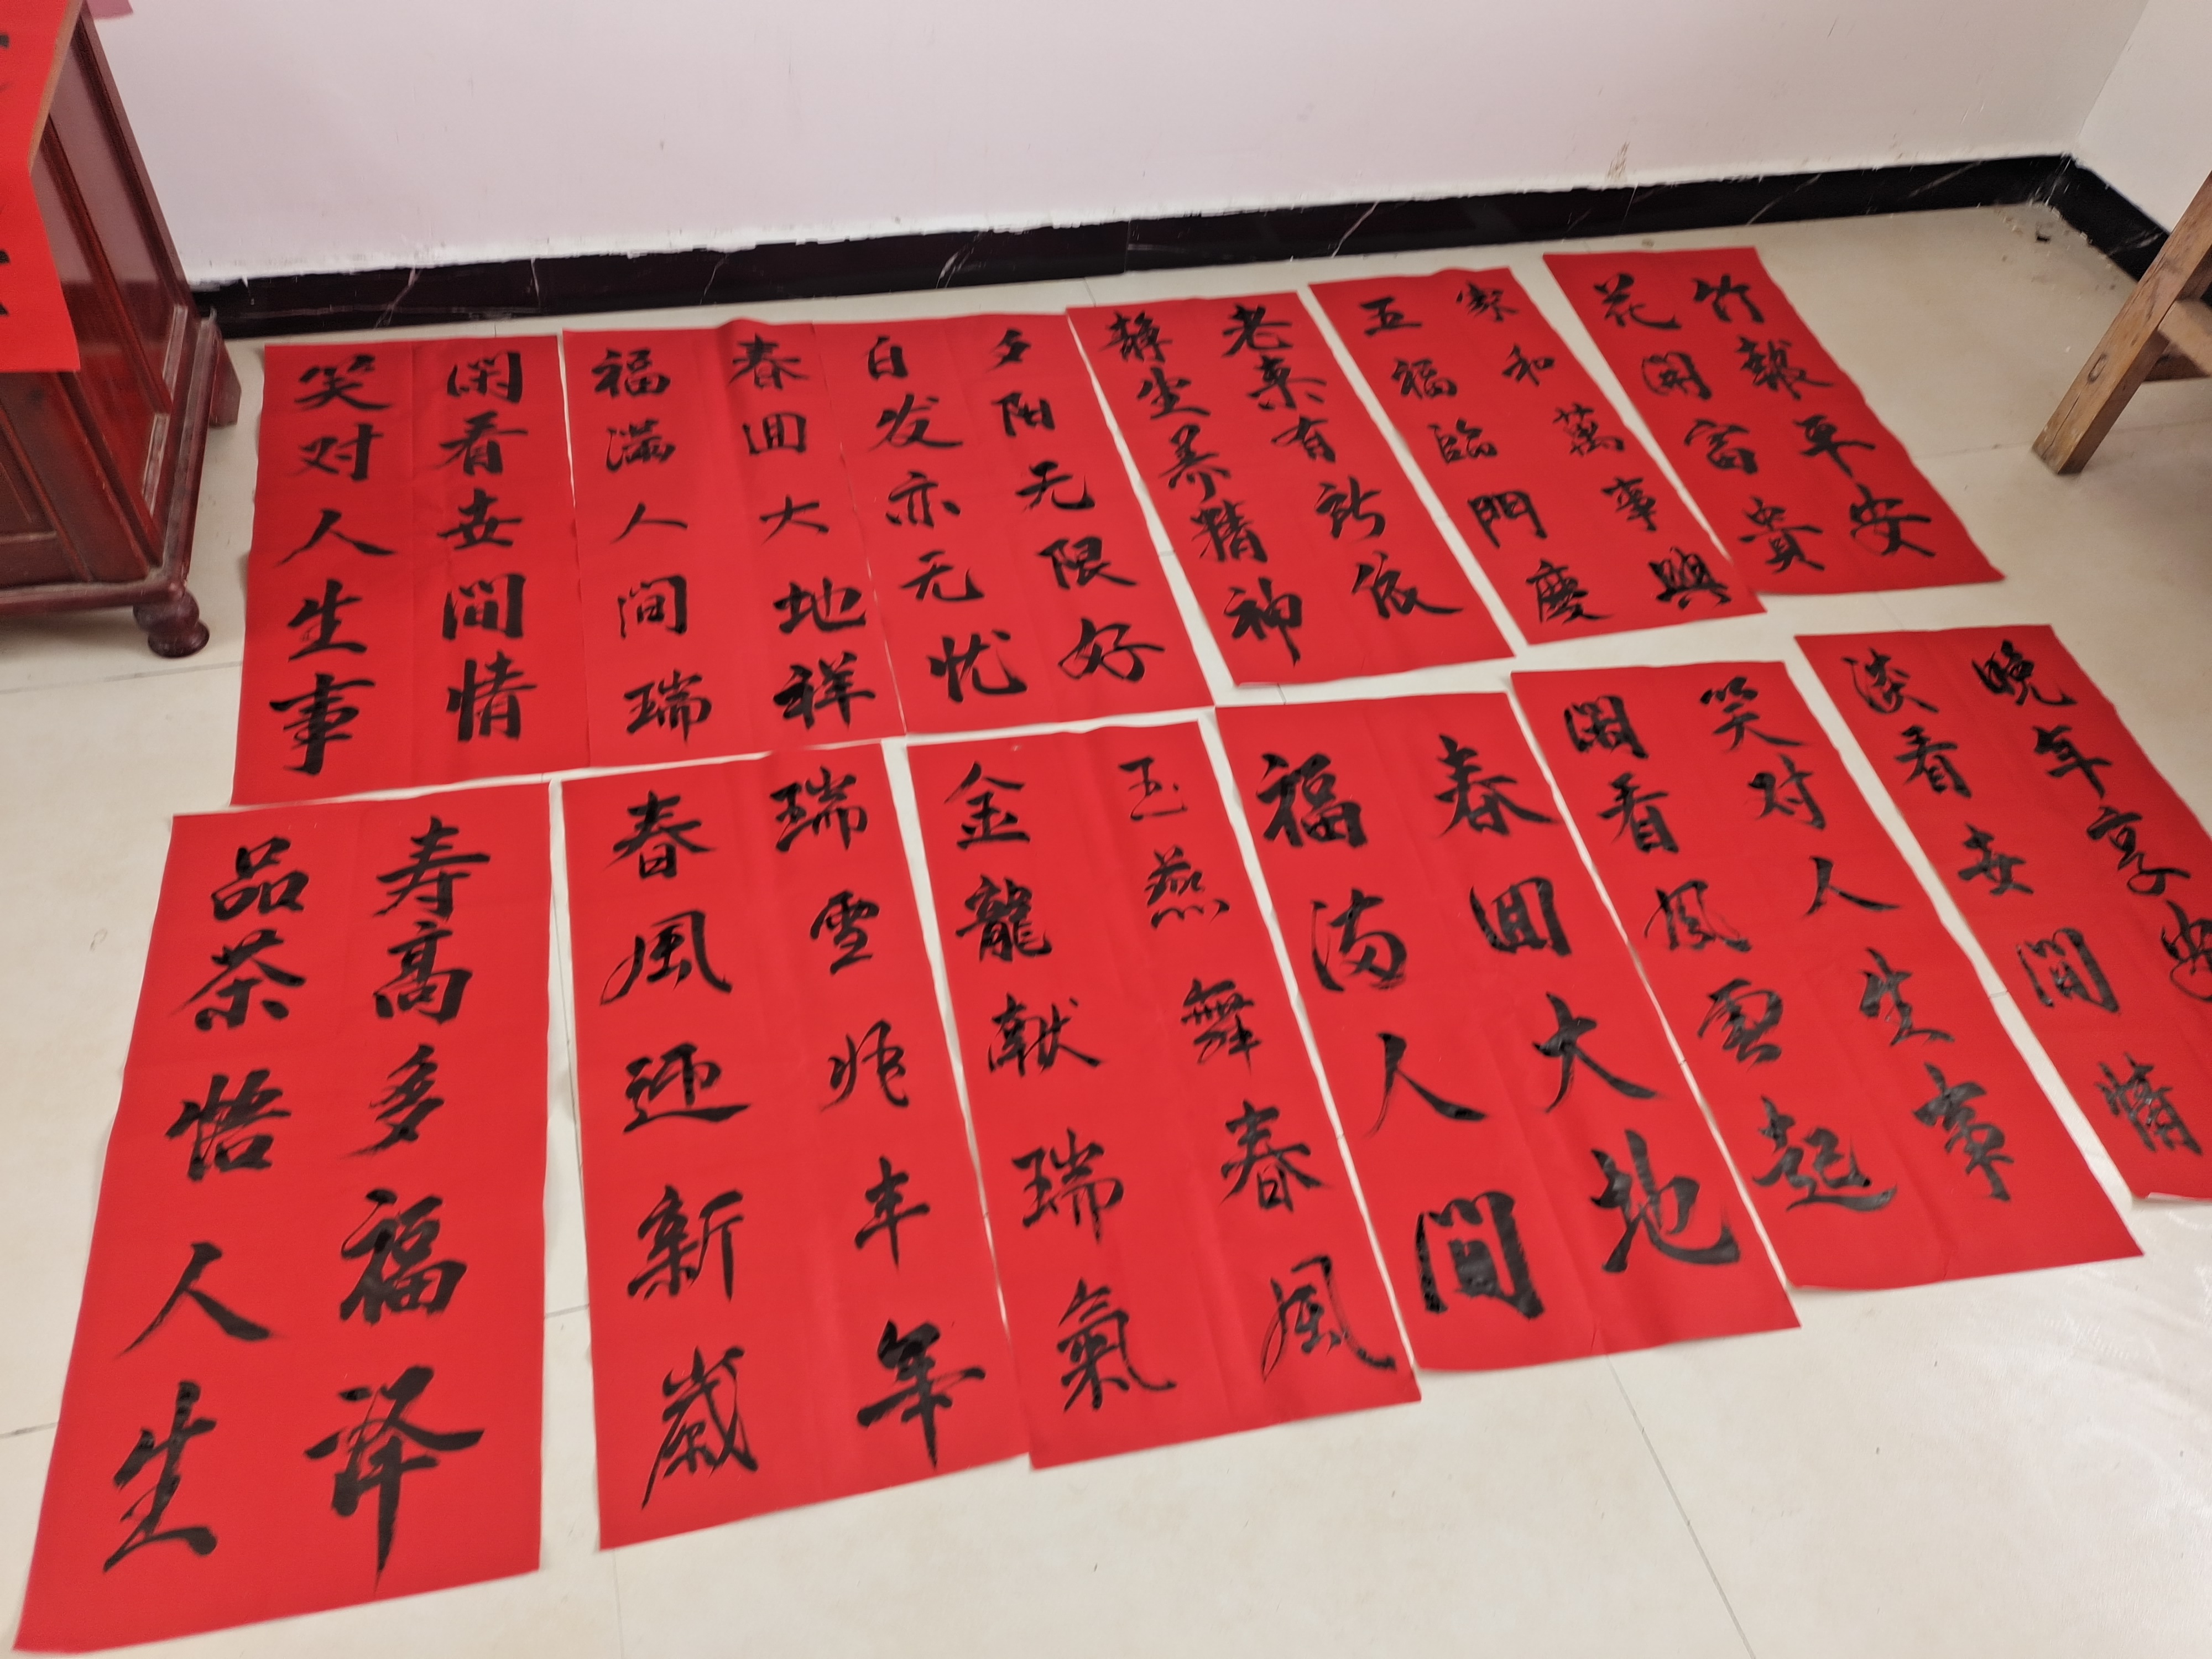 竹報平安
花開富貴
家和萬事興
五福臨門慶
老来有所依
静坐养精神
夕阳无限好
白发亦无忧
春囬大地祥
福滿人间瑞
閑看世間情
笑对人生事
晚年享
淡看世間情
笑对人生事
閑看風雲起
春囬大地
福满人間
玉燕舞春風
金龍献瑞氣
瑞雪兆丰年
春風迎新歲
寿高多福泽
品茶悟人生